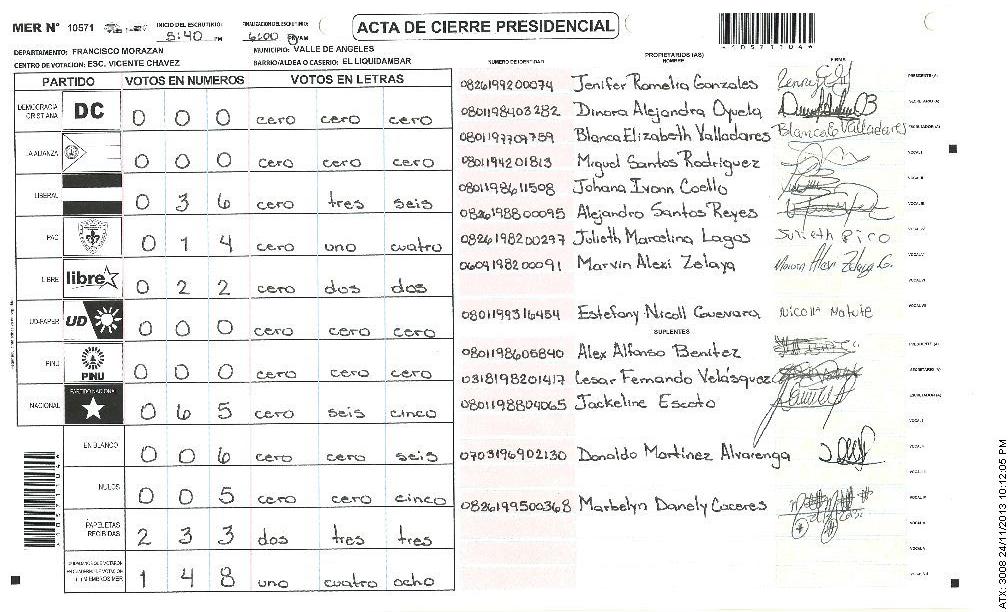 MER Nº 10571 INICIO DEL ESCRUTINIO: 5:40 PM FINALIZACION DEL ESCRUTINIO: 6:00 PM/AM
ACTA DE CIERRE PRESIDENCIAL
DEPARTAMENTO: FRANCISCO MORAZAN MUNICIPIO: VALLE DE ANGELES
CENTRO DE VOTACION: ESC. VICENTE CHAVEZ BARRIO/ALDEA O CASERIO: EL LIQUIDAMBAR
PARTIDO VOTOS EN NUMEROS VOTOS EN LETRAS
DEMOCRACIA CRISTIANA DC 0 0 0 cero cero cero
LA ALIANZA 0 0 0 cero cero cero
LIBERAL 0 3 6 cero tres seis
PAC 0 1 4 cero uno cuatro
LIBRE libre 0 2 2 cero dos dos
UD-FAPER UD 0 0 0 cero cero cero
PINU PINU 0 0 0 cero cero cero
NACIONAL PARTIDO NACIONAL 0 6 5 cero seis cinco
EN BLANCO 0 0 6 cero cero seis
NULOS 0 0 5 cero cero cinco
PAPELETAS RECIBIDAS 2 3 3 dos tres tres
1 4 8 uno cuatro ocho
PROPIETARIOS (AS)
NUMERO DE IDENTIDAD NOMBRE FIRMA
0826199200074 Jenifer Romelia Gonzales PRESIDENTE (A)
0801198403282 Dinora Alejandra Oyuela SECRETARIO (A)
0801197709759 Blanca Elizabeth Valladares Blanca e Valladares ESCRUTADOR (A)
0801194201813 Miguel Santos Rodriguez VOCAL I
0801198611508 Johana Ivonn Coello VOCAL II
0826198800095 Alejandro Santos Reyes VOCAL III
0826198200297 Julieth Marcelina Lagos VOCAL IV
0604198200091 Marvin Alexi Zelaya Marvin Alexi Zelaya G. VOCAL V
VOCAL VI
0801199316454 Estefany Nicoll Guevara Nicolle Matute VOCAL VII
SUPLENTES
0801198605840 Alex Alfonso Benitez PRESIDENTE (A)
0318198201417 Cesar Fernando Velásquez SECRETARIO (A)
0801198804065 Jackeline Escoto ESCRUTADOR (A)
VOCAL I
0703196902130 Donaldo Martínez Alvarenga VOCAL II
VOCAL III
0826199500368 Marbelyn Danely Caceres VOCAL IV
VOCAL V
ATX: 3008 24/11/2013 10:12:05 PM